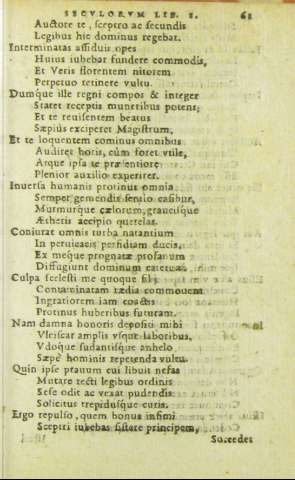 SECVLORVM LIB. I. 61
Auctore te, sceptro ac secundis
Legibus hic dominus regebat.
Interminatas assiduis opes
Huius iubebas fundere commodis,
Et Veris florentem nitorem
Perpetuo retinere vultu.
Dumque ille regni compos & integer
Staret receptis muneribus potens;
Et te reuisentem beatus
Sæpius exciperet Magistrum,
Et te loquentem cominus omnibus
Audiret horis, cùm foret vtile,
Atque ipsa te præsentiore
Plenior auxilio experiret.
Inuersa humanis protinus omnia
Semper gemendis sensio casibus,
Murmurque cælorum, grauesque
Ætheris accipio querelas.
Coniurat omnis turba natantium
In peruicacis perfidiam ducis,
Ex meque prognatæ profanum
Diffugiunt dominum cateruæ.
Culpa scelesti me quoque filij
Contaminatam tædia commouent
Ingratiorem iam coactis
Protinus huberibus futuram.
Nam damna honoris depositi mihi
Vlciscar amplis vsque laboribus,
Vdoque sudantisque anhelo
Sæpè hominis repetenda vultu.
Quin ipse prauum cui libuit nefas
Mutare recti legibus ordinis
Sese odit ac vexat pudendis
Solicitus trepidusque curis.
Ergo repulso, quem bonus infimi
Sceptri iubebas sistere principem,
Succedes